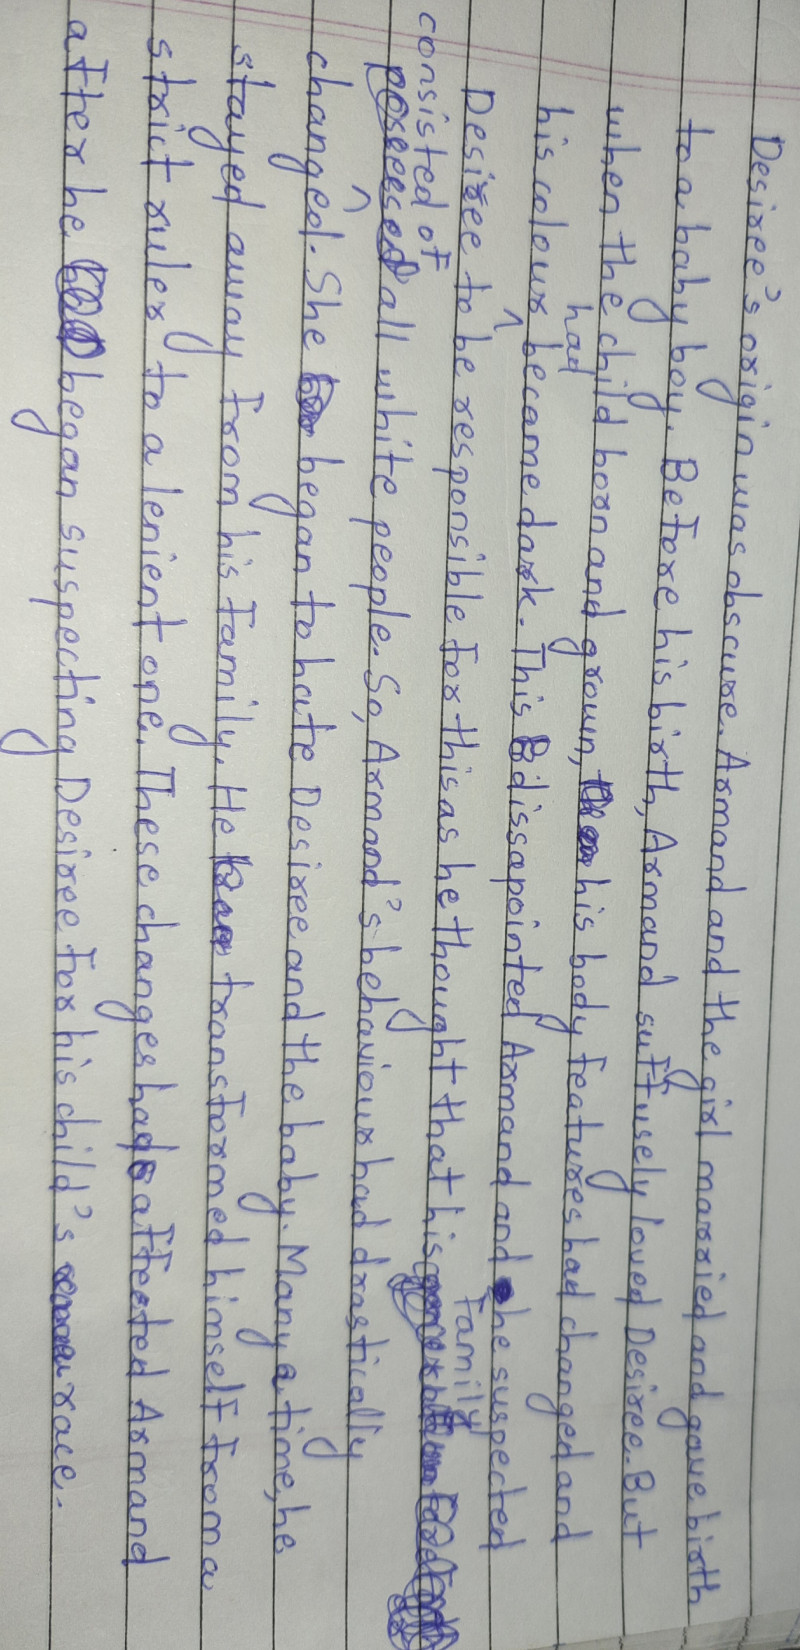 Desiree's origin was obscure. Armand and the girl married and gave birth
to a baby boy. Before his birth, Armand suffusely loved Desiree. But
when the child born and grown, his body features had changed and
his colour had became dark. This dissapointed Armand and he suspected
Desiree to be responsible for this as he thought that his family
consisted of all white people. So, Armand's behaviour had drastically
changed. She began to hate Desiree and the baby. Many a time, he
stayed away from his family. He transformed himself from a
strict ruler to a lenient one. These changes had affected Armand
after he began suspecting Desiree for his child's race.